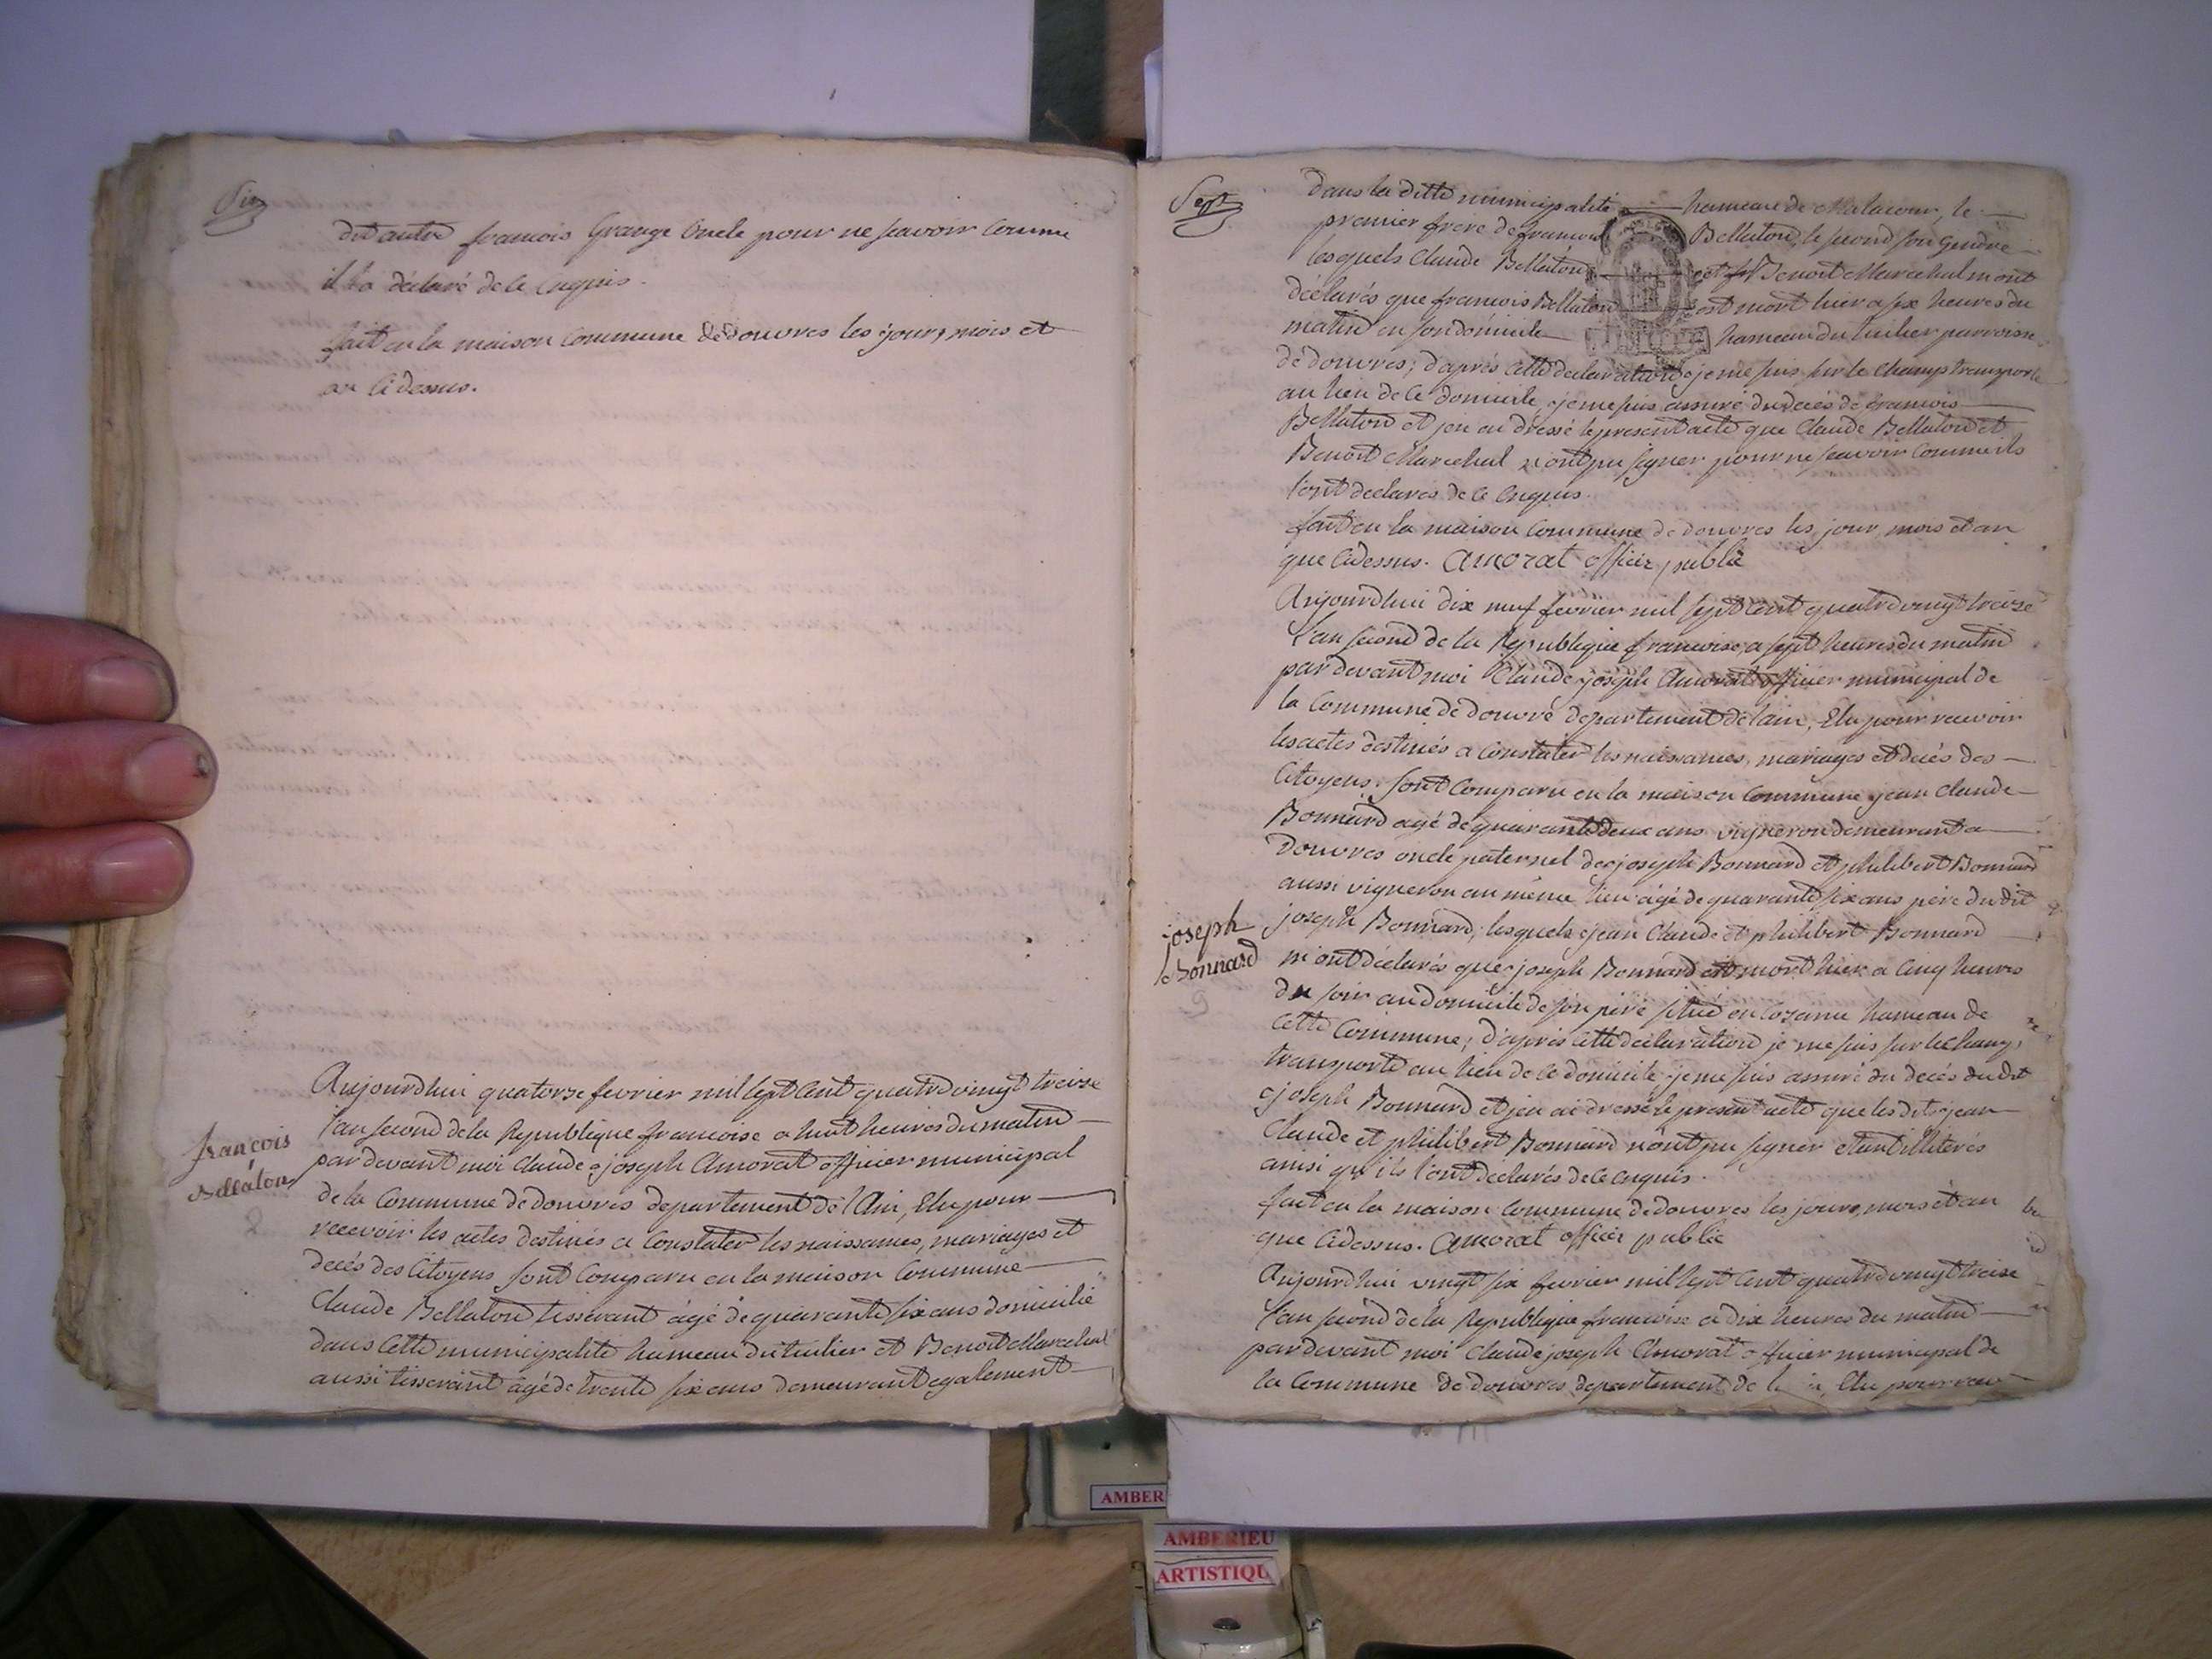 Six
dit autre francois Grange Oncle pour ne scavoir comme
il l'a déclaré de ce Enquis.
fait en la maison commune de douvres les jour, mois et
an Cidessus.
Aujourdhui quatorze fevrier mil sept Cent quatre vingt treize
l'an second de la Republique francoise a huit heures du matin
par devant moi Claude joseph Amorat officier municipal
de la Commune de douvres departement de l'Ain, Elu pour
recevoir les actes destinés a Constater les naissances, mariages et
decés des Citoyens sont Comparu en la maison Commune
françois
Bellaton
2
Claude Bellaton tisserant âgé de quarante six ans domicilié
dans cette municipalité hameau du tiulier et Benoit Marechal
aussi tisserant âgé de trente six ans demeurant egalement
Sept
dans la ditte municipalité hameau de Malacour, le
premier frere de francois Bellaton, le second son gendre
lesquels Claude Bellaton et Benoit Marechal m'ont
déclarés que francois Bellaton est mort hier a six heures du
matin en son domicile hameau du tiulier parroisse
de douvres; d'aprés cette declaration je me suis sur le champs transporté
au lieu de ce domicile je me suis assuré du decés de francois
Bellaton et j'en ai dressé le present acte que Claude Bellaton et
Benoit Marechal n'ont pu signer pour ne scavoir comme ils
l'ont declarés de ce Enquis.
fait en la maison Commune de douvres les jour, mois et an
que Cidessus. Amorat officier public
Aujourdhui dix neuf fevrier mil sept Cent quatre vingt treize
l'an second de la Republique francoise, a sept heures du matin
par devant moi Claude joseph Amorat officier municipal de
la Commune de douvre departement de l'ain, Elu pour recevoir
les actes destinés a Constater les naissances, mariages et decés des
Citoyens. sont Comparu en la maison Commune jean claude
Bonnard agé de quarante deux ans vigneron demeurant a
Douvres oncle paternel de joseph Bonnard et philibert Bonnard
aussi vigneron au même lieu âgé de quarante six ans pere du dit
joseph
Bonnard
9
joseph Bonnard, lesquels jean Claude et philibert Bonnard
m'ont déclarés que joseph Bonnard est mort hier a Cinq heures
du soir au domicile de son pere situé en Cozance hameau de
Cette Commune; d'aprés cette déclaration je me suis sur le champ
transporté au lieu de ce domicile je me suis assuré du decés du dit
joseph Bonnard et j'en ai dressé le present acte que les dits jean
Claude et philibert Bonnard n'ont pu signer etant illiterés
ainsi qu'ils l'ont declarés de ce enquis.
fait en la maison Commune de douvres les jours, mois et an
que Cidessus. Amorat officier public
Aujourdhui vingt six fevrier mil sept Cent quatre vingt treize
l'an second de la Republique francoise a dix heures du matin
par devant moi Claude joseph Amorat officier municipal de
la Commune de douvres departement de Elu pour recev
AMBER
AMBERIEU
ARTISTIQU